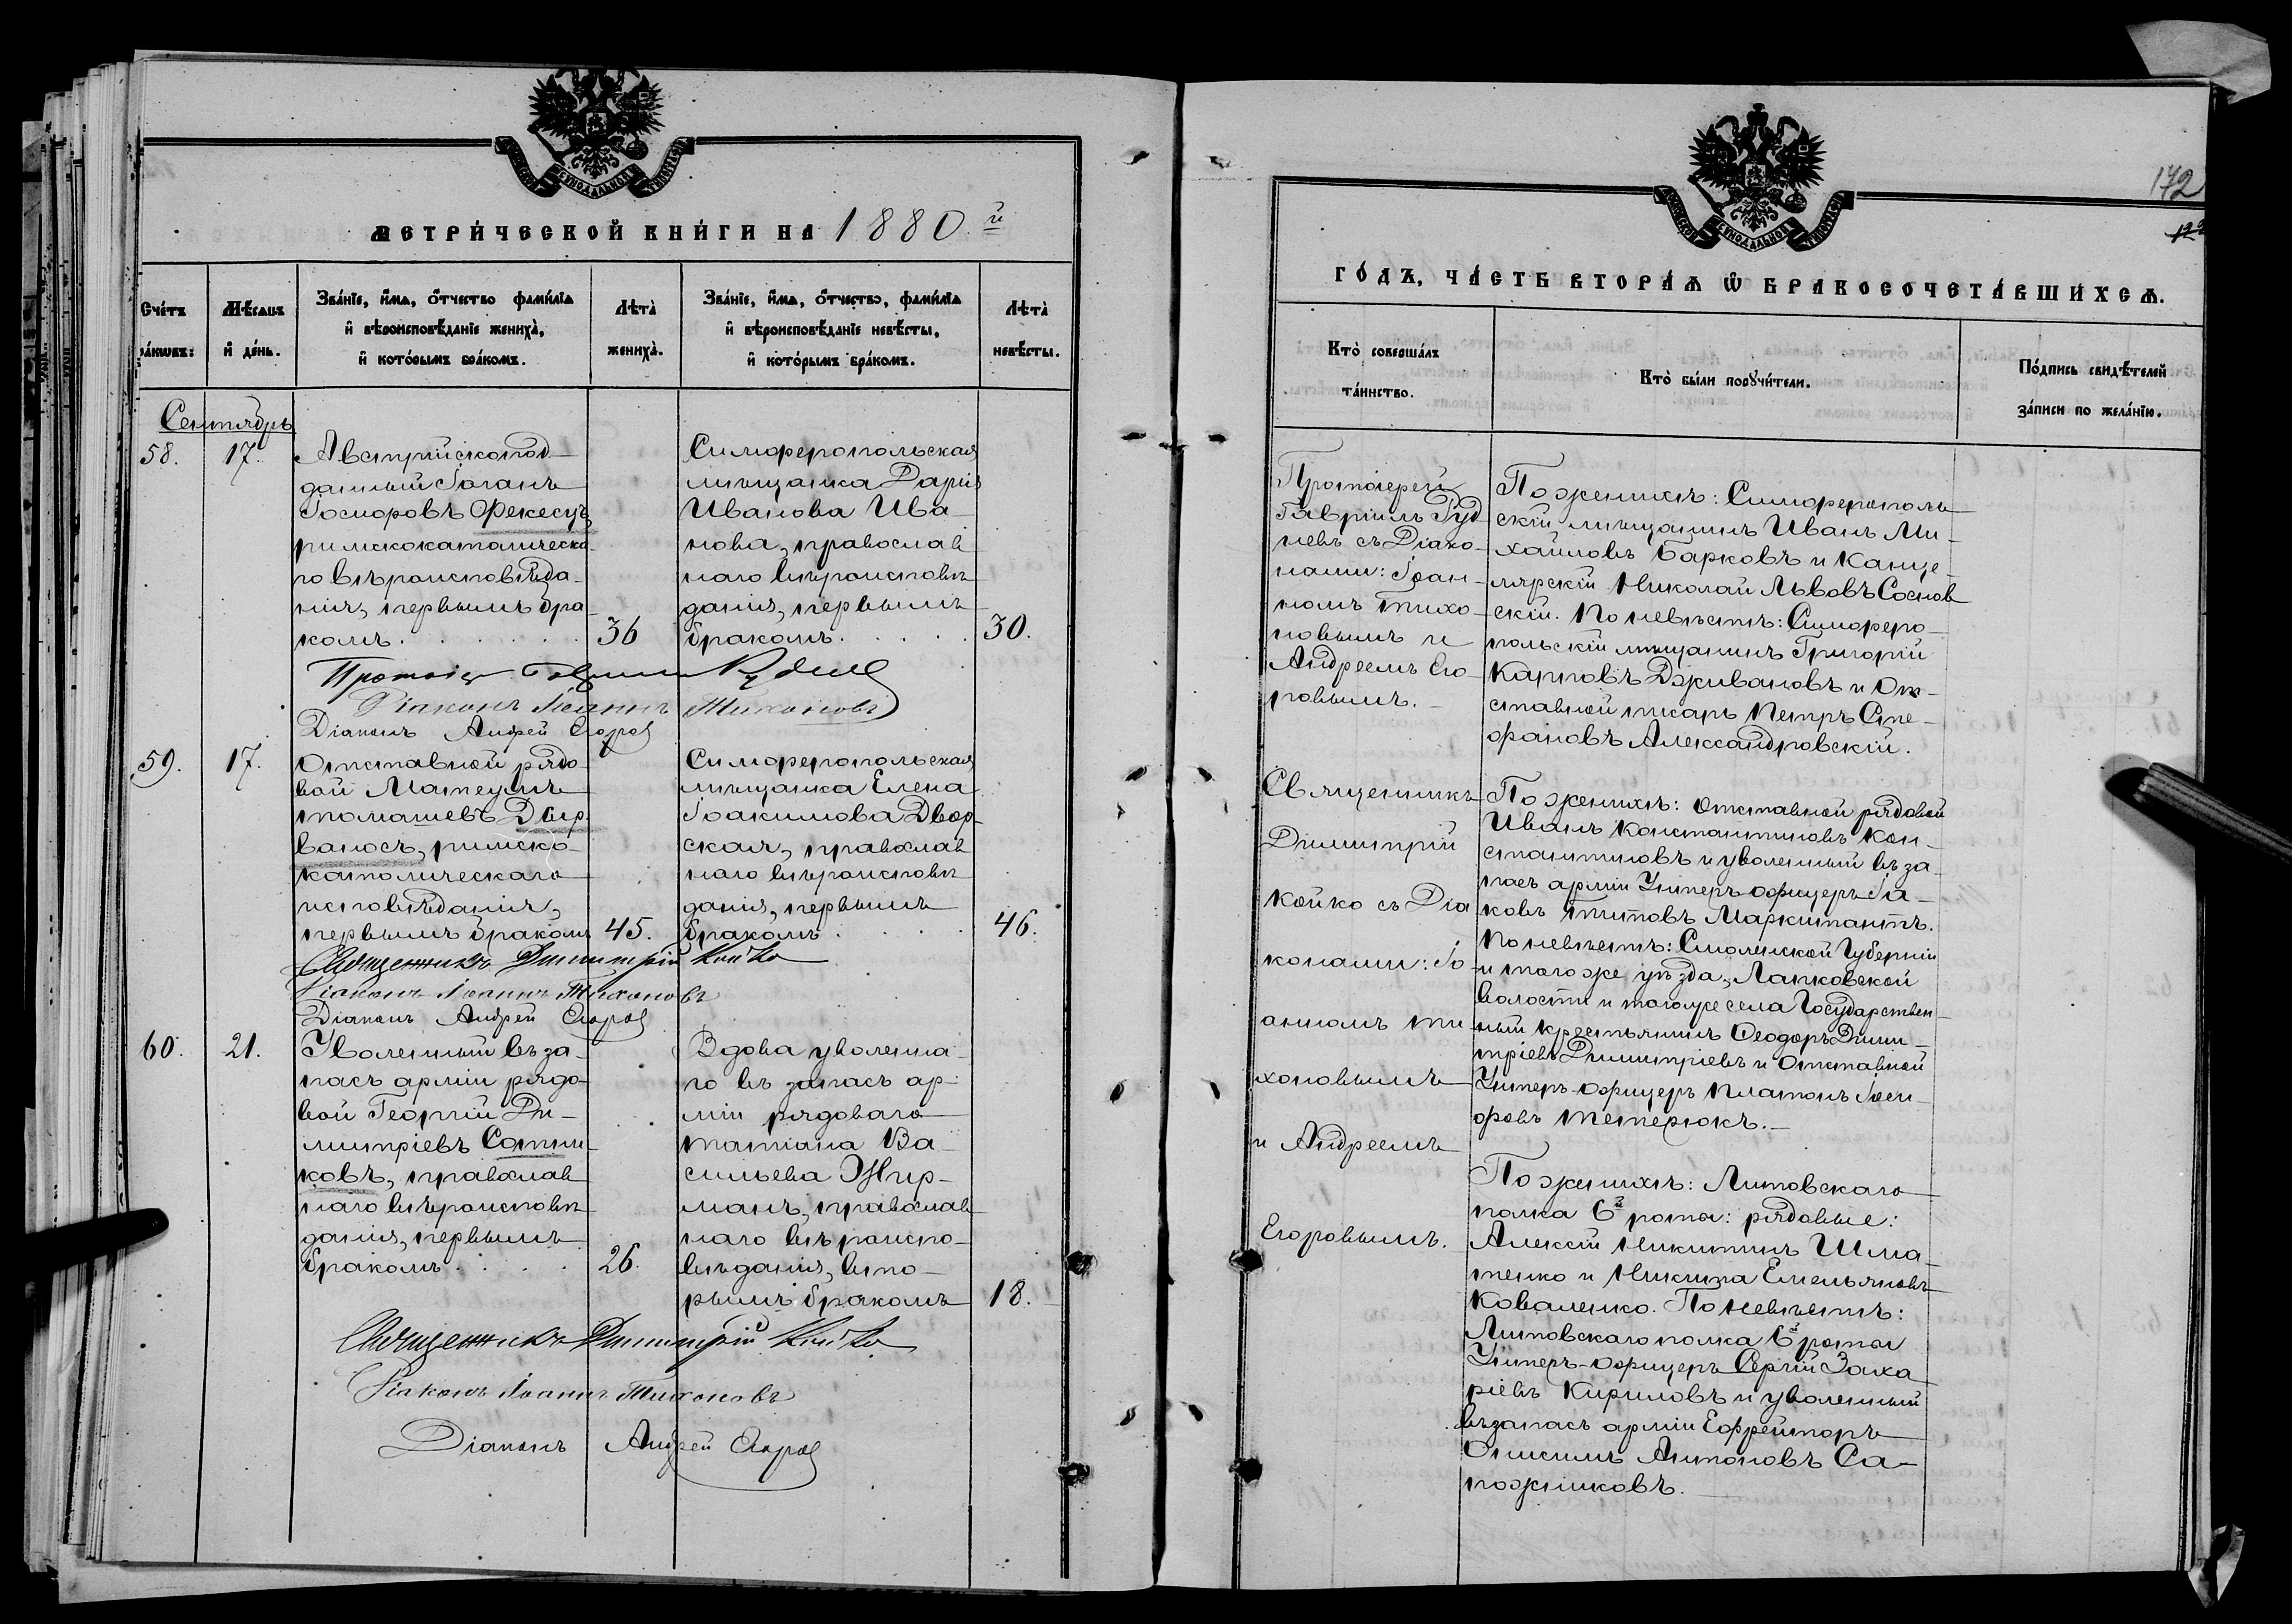 МЕТРИ́ЧЕСКОЙ КНИ́ГИ НА 1880.й
Сче́тъ
Мѣ́сяцъ
и де́нь.
Зва́нїе, и́мя, о́тчество фами́лїя
и вѣроисповѣ́данїе жениха̀,
и кото́рымъ бра́комъ.
Лѣта̀
жениха̀.
Зва́нїе, и́мя, о́тчество, фами́лїя
и вѣроисповѣ́данїе невѣ́сты,
и кото́рымъ бра́комъ.
Лѣта̀
невѣ́сты.
Сентябрь
58.
17.
Австрійскопод-
данный Іоганъ
Іосифовъ Фекесъ,
римскокатолическа-
го вѣроисповѣда-
нія, первымъ бра-
комъ.
36
Симферопольская
мѣщанка Дарія
Иванова Ива-
нова, православ
наго вѣроисповѣ
данія, первымъ
бракомъ.
30.
Діаконъ Іоаннъ Тихоновъ
Діаконъ Андрей Егоровъ
59.
17.
Отставной рядо-
вой Матеушъ
Томашевъ Дыр-
ваносъ, римско-
католическаго
исповѣданія,
первымъ бракомъ
45.
Симферопольская
мѣщанка Елена
Іоакимова Двор-
ская, православ
наго вѣроисповѣ
данія, первымъ
бракомъ
46.
Священникъ Димитрій Койко
Діаконъ Іоаннъ Тихоновъ
Діаконъ Андрей Егоровъ
60.
21.
Уволенный въ за-
пасъ арміи рядо-
вой Георгій Ди-
митріевъ Сотни-
ковъ, православ
наго вѣроисповѣ
данія, первымъ
бракомъ.
26.
Вдова уволенна-
го въ запасъ ар-
міи рядоваго
Татіана Ва-
сильева Жир-
манъ, православ-
наго вѣроиспо-
вѣданія, вто-
рымъ бракомъ
18.
Священникъ Димитрій Койко
Діаконъ Іоаннъ Тихоновъ
Діаконъ Андрей Егоровъ
172
ГО́ДЪ, ЧА́СТЬ ВТОРА́Я Ѡ БРАКОСОЧЕТА́ВШИХСЯ.
Кто̀ соверша́лъ
та́инство.
Кто̀ бы́ли поꙋчи́тели.
По́дпись свидѣ́телей
за́писи по жела́нїю.
Протоіерей
Гавріилъ Руд
невъ съ Діако-
нами: Іоан-
номъ Тихо-
новымъ и
Андреемъ Его-
ровымъ.
По женихѣ: Симферополь-
скій мѣщанинъ Иванъ Ми-
хайловъ Барковъ и Канце-
лярскій Николай Львовъ Соснов
скій. По невѣстѣ: Симферо-
польскій мѣщанинъ Григорій
Карповъ Дживановъ и От-
ставной писарь Петръ Сте-
фановъ Александровскій.
Священникъ
Димитрій
Койко съ Діа
конами: Іо-
анномъ Ти-
хоновымъ
и Андреемъ
Егоровымъ.
По женихѣ: Отставной рядовой
Иванъ Константиновъ Кон-
стантиновъ и уволенный въ за-
пасъ арміи Унтеръ-офицеръ Іа-
ковъ Титовъ Маркитантъ.
По невѣстѣ: Смоленской Губерніи
и того же уѣзда, Лапковской
волости и того же села Государствен-
ный крестьянинъ Ѳеодоръ Дими-
тріевъ Димитріевъ и Отставной
Унтеръ-офицеръ Платонъ Іоси-
фовъ Тетерюкъ.
По женихѣ: Литовскаго
полка 6й роты: рядовые:
Алексій Никитинъ Шма-
тенко и Никита Емельяновъ
Коваленко. По невѣстѣ:
Литовскаго полка 6й роты
Унтеръ-офицеръ Сергій Заха
ріевъ Кириловъ и уволенный
въ запасъ арміи Ефрейторъ
Онисимъ Антоновъ Са-
пожниковъ.